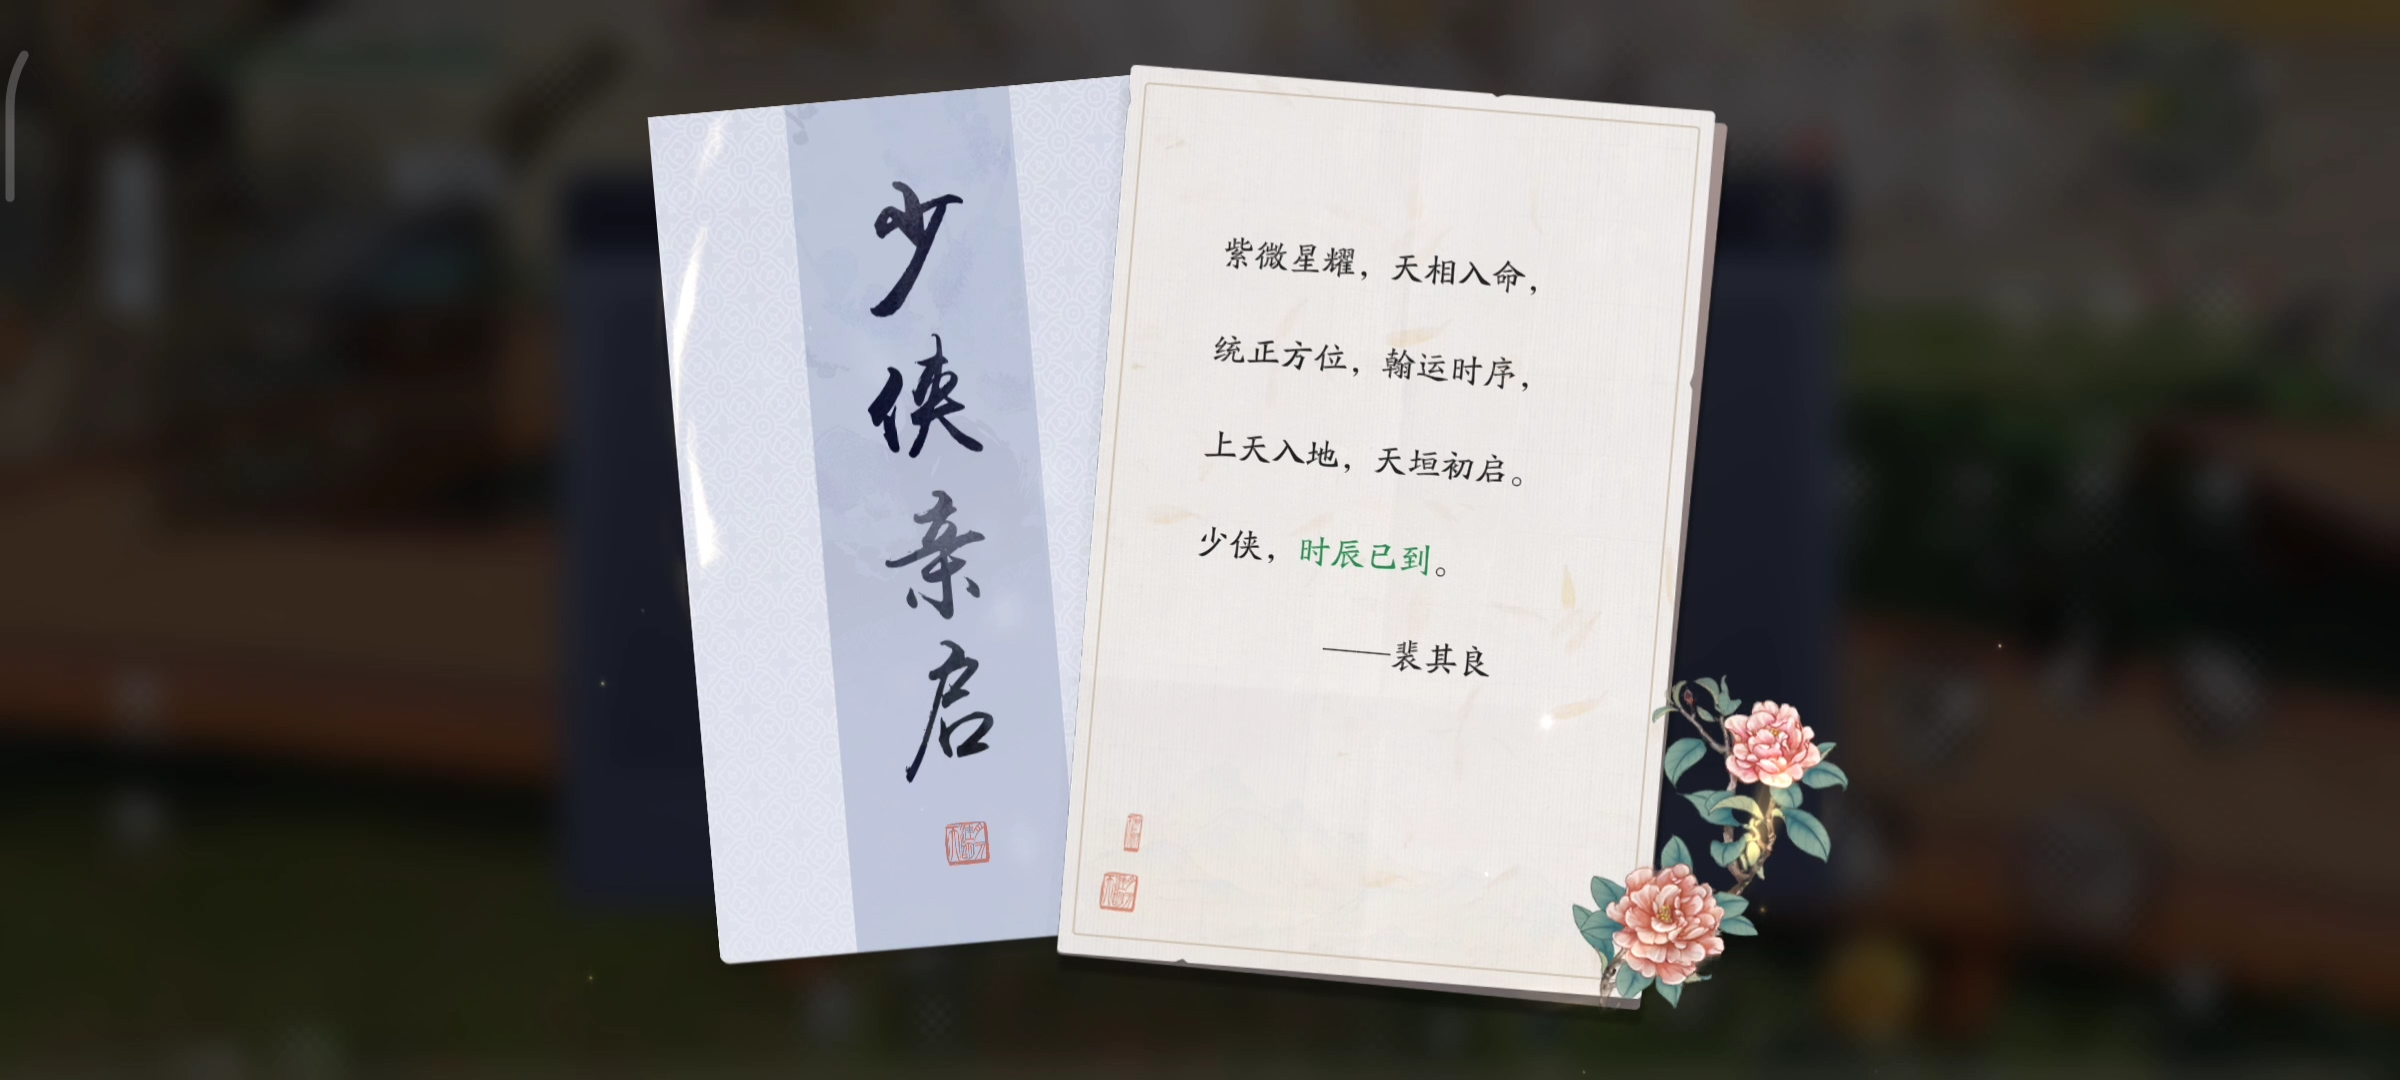 少侠亲启
紫微星耀，天相入命，
统正方位，翰运时序，
上天入地，天垣初启。
少侠，时辰已到。
——裴其良